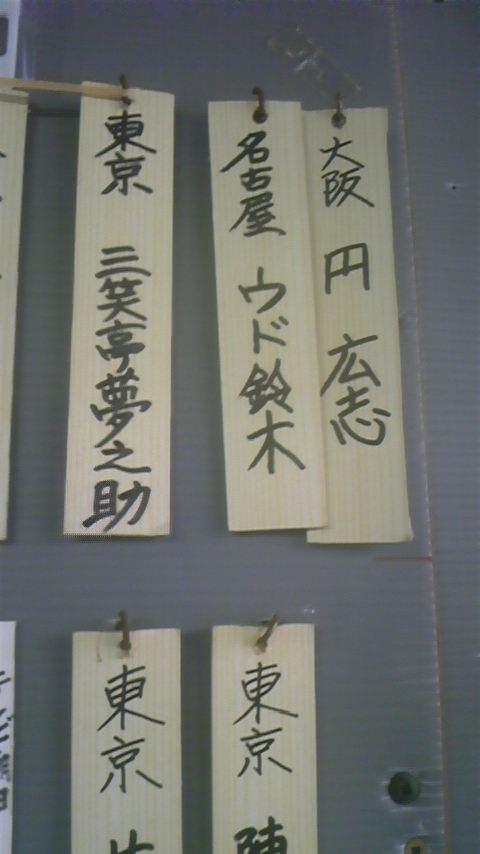 大阪 円 広志
名古屋 ウド鈴木
東京 三笑亭夢之助
東京 陳
東京